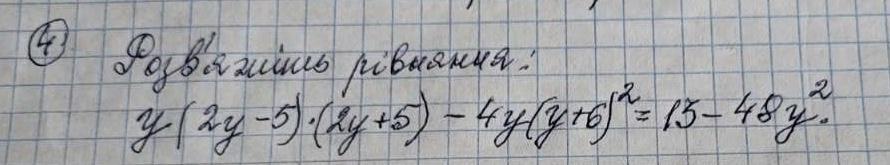 4 Розв'яжіть рівняння:
y(2y-5)·(2y+5)-4y(y+6)²=13-48y².